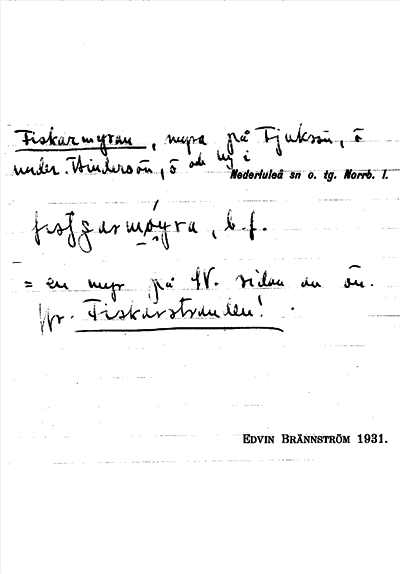 Fiskarmyran, myra på Tjuksön, ö
under. Hindersön, ö och by i
Nederluleå sn o. tg. Norrb. l.
b. f.
= en myr på SV. sidan av ön.
Jfr. Fiskarstranden!
EDVIN BRÄNNSTRÖM 1931.